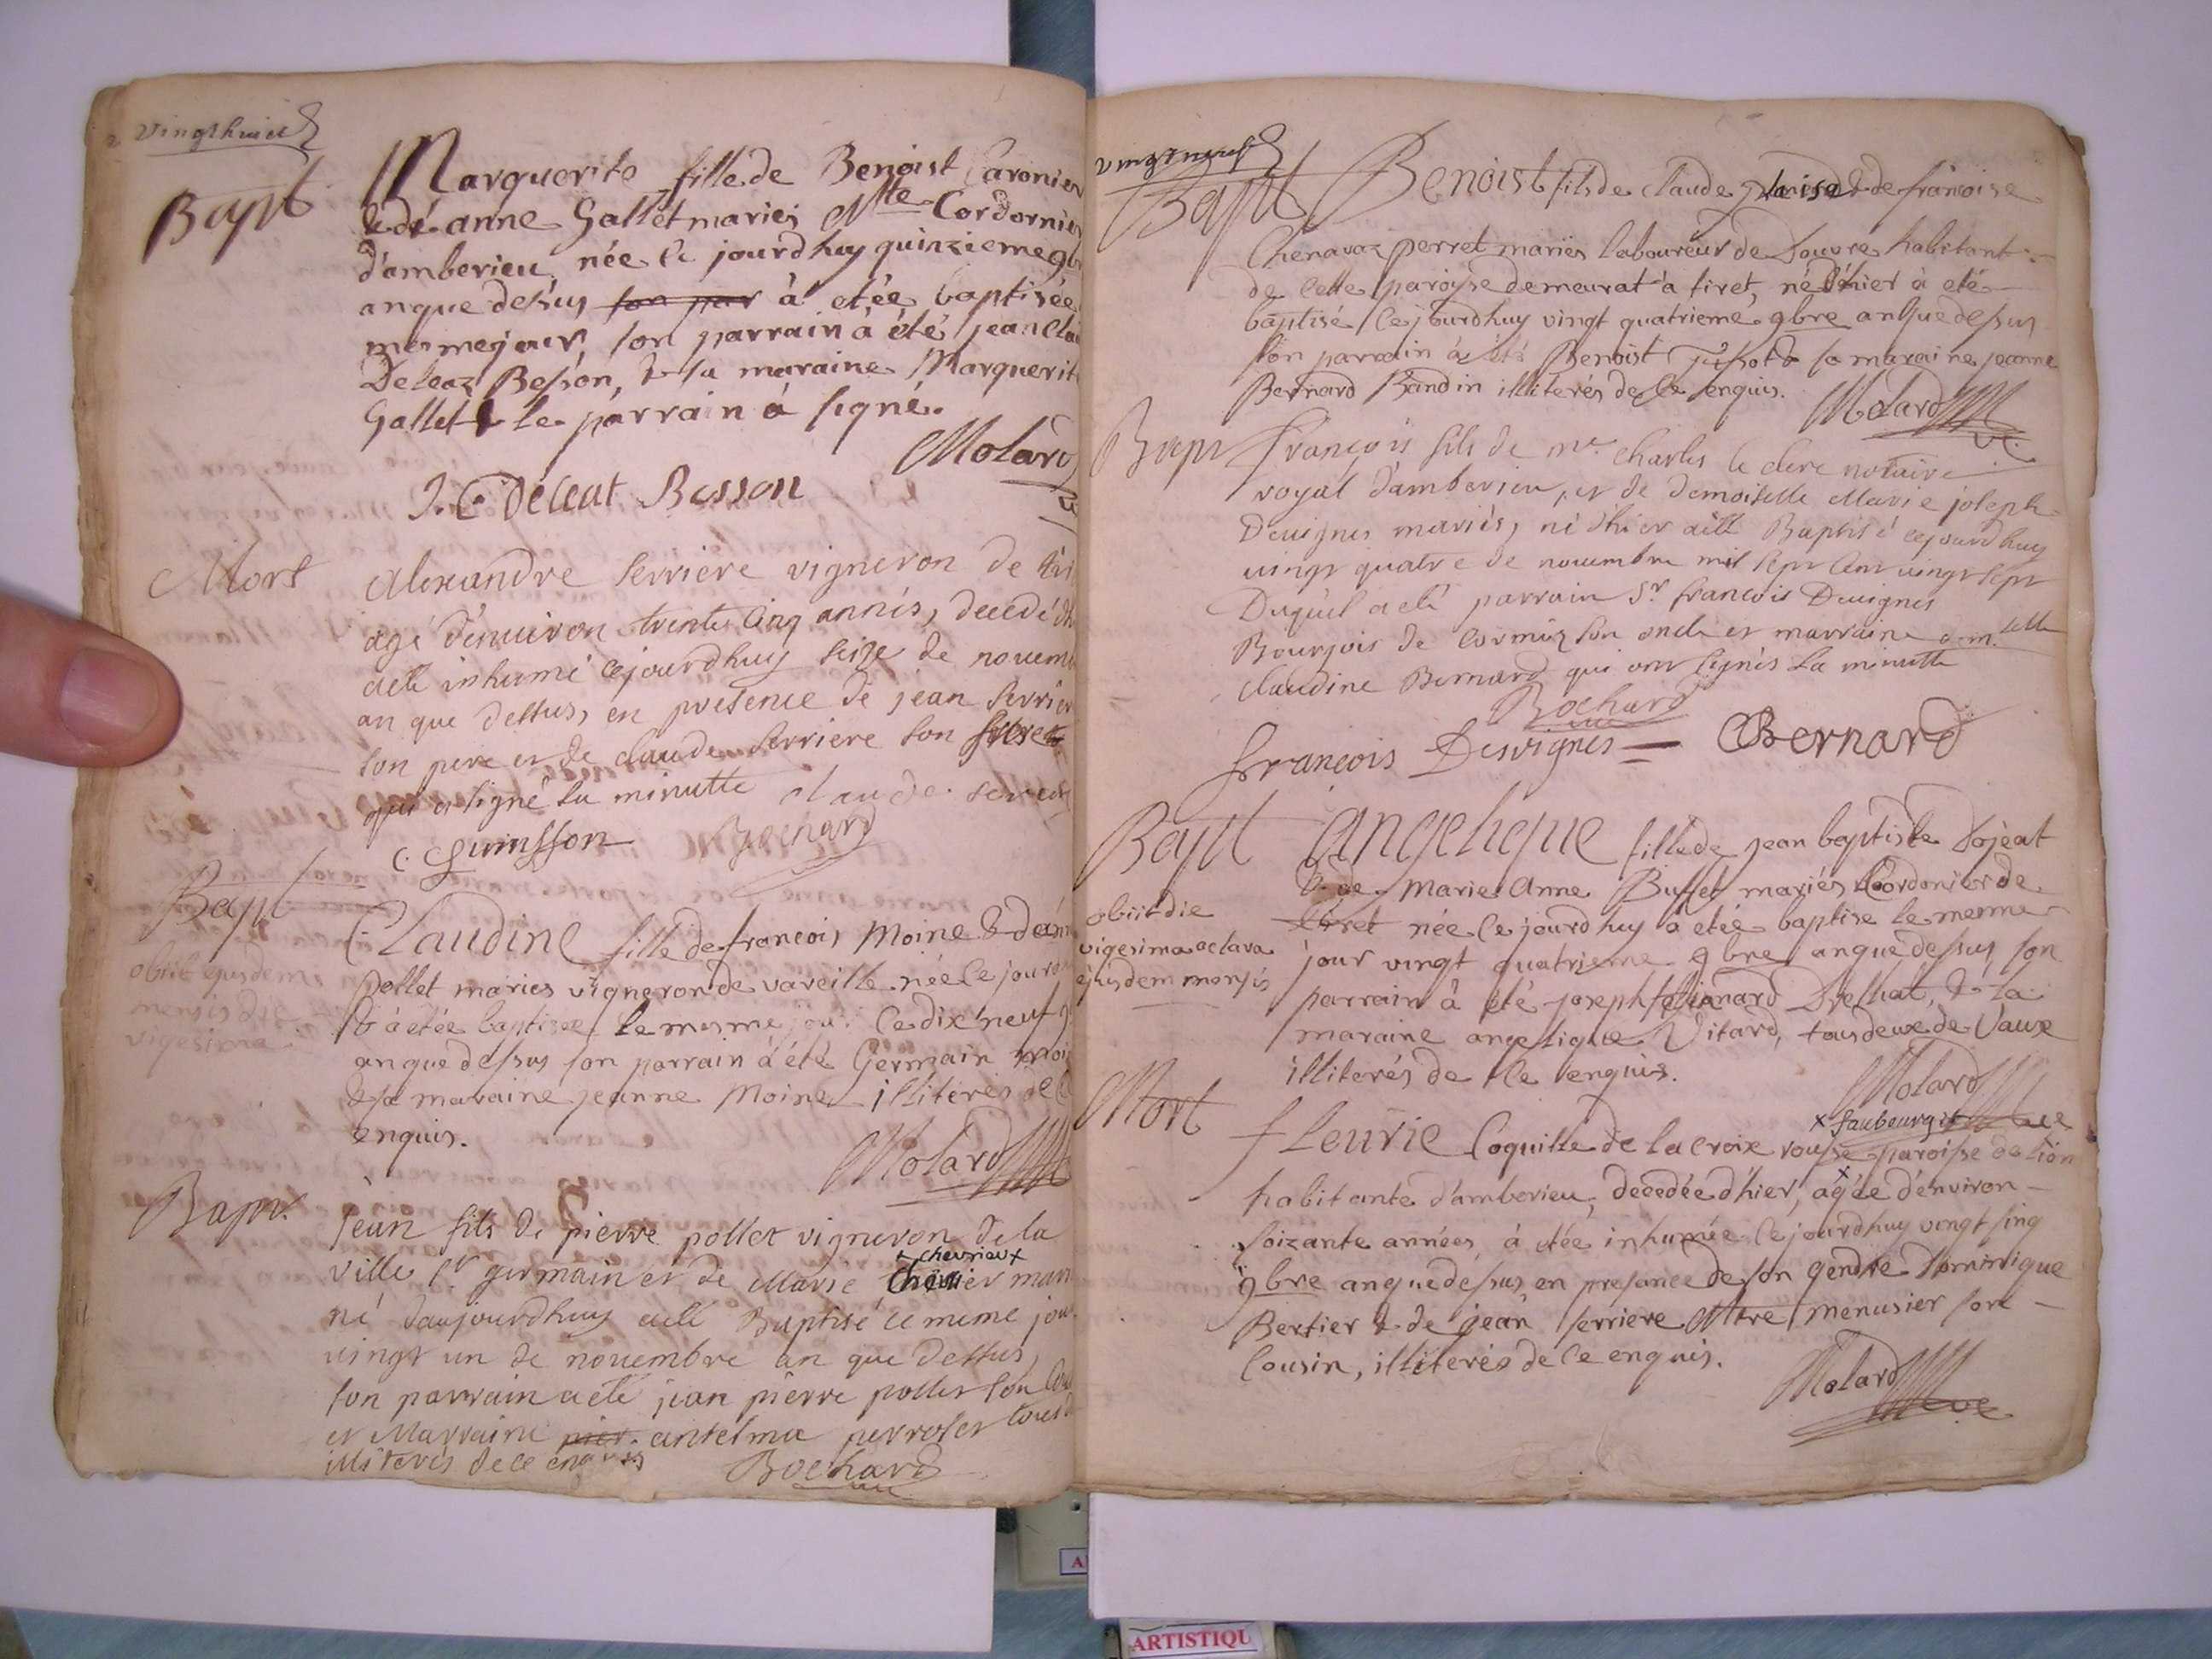 vingthuict
Bapt
Marguerite fille de Benoist Caronier
& de anne Gallet mariés Mtre Cordornier
d'amberieu née le jourdhuy quinzieme 9b
an que dessus son par à etée baptisée
mesme jour, son parrain à été jean Clau
Deleaz Besson, & sa maraine Marguerite
Gallet & le parrain à signé.
Molard
J. C Déleat Besson
Mort
Alexandre serriere vigneron de tir
agé d'enuiron trente cinq annés, decedé
aeté inhumé cejourdhuy seize de nouem
an que dessus, en presence de jean serrier
son pere et de claude serriere son frere
qui a signé la minutte claude
C. Guinsson Bochard
Bapt
obiit ejusdem
mensis die
vigesima
Claudine fille de francois Moine & d'ann
pollet mariés vigneron de vareille née le jourd
& à etée baptisée le mesme jour Ce dix neuf 9
an que dessus son parrain à été Germain moi
& sa maraine jeanne Moine illiterés de
enquis.
Molard
Bapt.
jean fils de pierre pollet vigneron de la
ville st germain et de Marie
x chevrier x
mari
né daujourdhuy aeté Baptisé le meme jou
vingt un de nouembre an que dessus,
son parrain aeté jean pierre pollet son
et Marraine antelma perrolet tous
illiterés de ce enquis Bochard
vingtneuf
Bapt
Benoist fils de claude plaise & de francoise
Chenavaz perret mariés laboureur de Souvre habitant
de cette paroisse demeurat à tiret, né d'hier à eté
baptisé le jourdhuy vingt quatrieme 9bre an que dessus
son parrain à été Benoist Jusot & sa maraine jeanne
Bernard Bandin illiterés de Ce enquis. Molard
ve
Bapt
françois fils de mre charles le clerc notaire
royal d'amberieu, et de demoiselle Marie joseph
Deuignes mariés, né d'hier aété Baptisé cejourdhuy
uingt quatre de nouembre mil sept cent uingt sept
Duquel aeté parrain Sr françois Deuignes
Bourjois de Cormoz son oncle et marraine
claudine Bernard qui ont signés la minutte
Bochard
francois Desvignes = CBernard
Bapt
obiit die
vigesima octava
ejusdem mensis
Angelique fille de jean baptiste Sojeat
& de Marie Anne Buffet mariés Cordonier de
tiret née le jourdhuy à etée baptise le mesme
jour vingt quatrieme 9bre an que dessus son
parrain à été joseph Drelhat, & la
maraine angelique Vitard, tous deux de Vaux
illiterés de Ce enquis. Molard
Mort
x faubourg
fleurie Coquille de la croix rousse paroisse de lion
habitante d'amberieu, decedée d'hier, agée d'environ
soizante années à etée inhumée le jourdhuy vingt sinq
9bre an que dessus, en presance de son gendre Dominique
Bertier & de jean serriere Mtre menusier son
Cousin, illiterés de ce enquis.
Molard
ve
A
ARTISTIQU